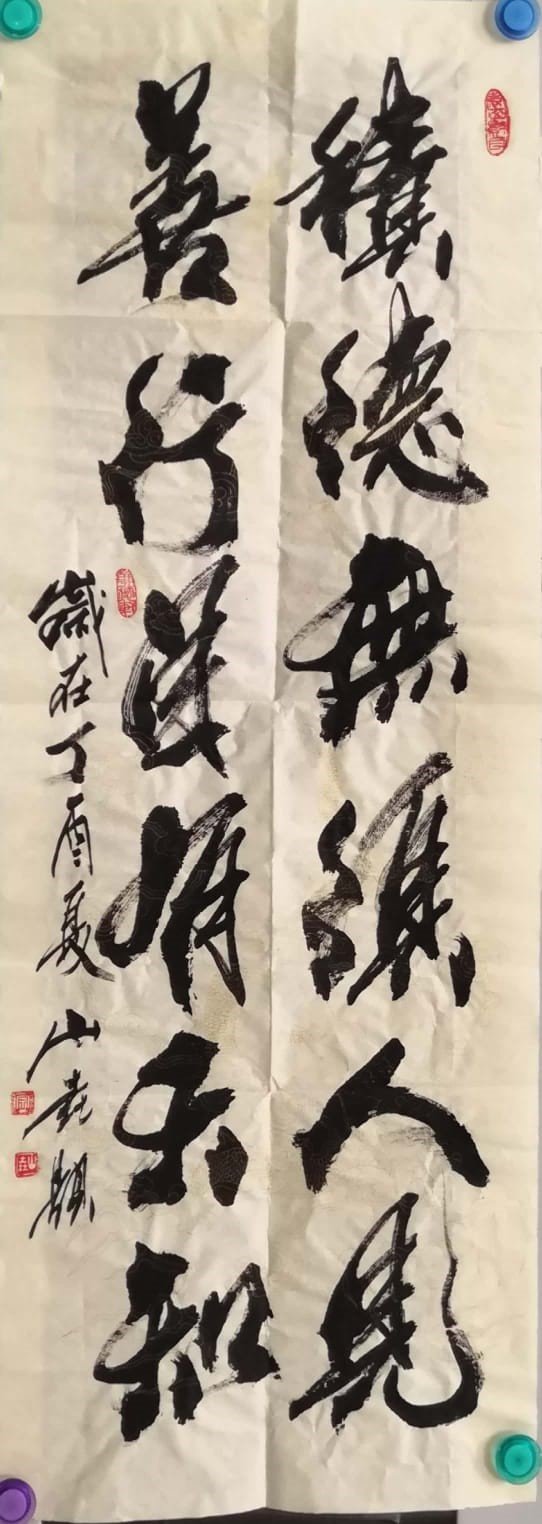 積德無須人見
善行自有天知
歲在丁酉夏山題